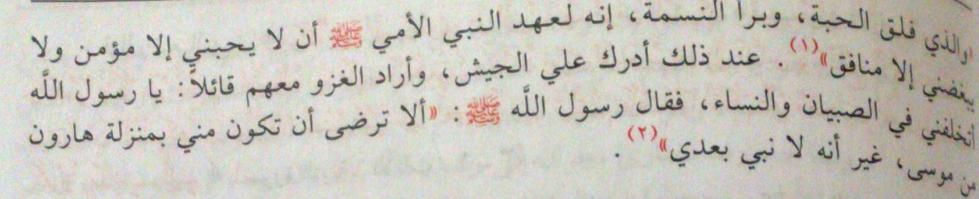 والذي فلق الحبة، وبرأ النسمة، إنه لعهد النبي الأمي ﷺ أن لا يحبني إلا مؤمن ولا
يبغضني إلا منافق»(١). عند ذلك أدرك علي الجيش، وأراد الغزو معهم قائلاً: يا رسول اللَّه
أتخلفني في الصبيان والنساء، فقال رسول اللَّه ﷺ: «ألا ترضى أن تكون مني بمنزلة هارون
من موسى، غير أنه لا نبي بعدي»(٢).